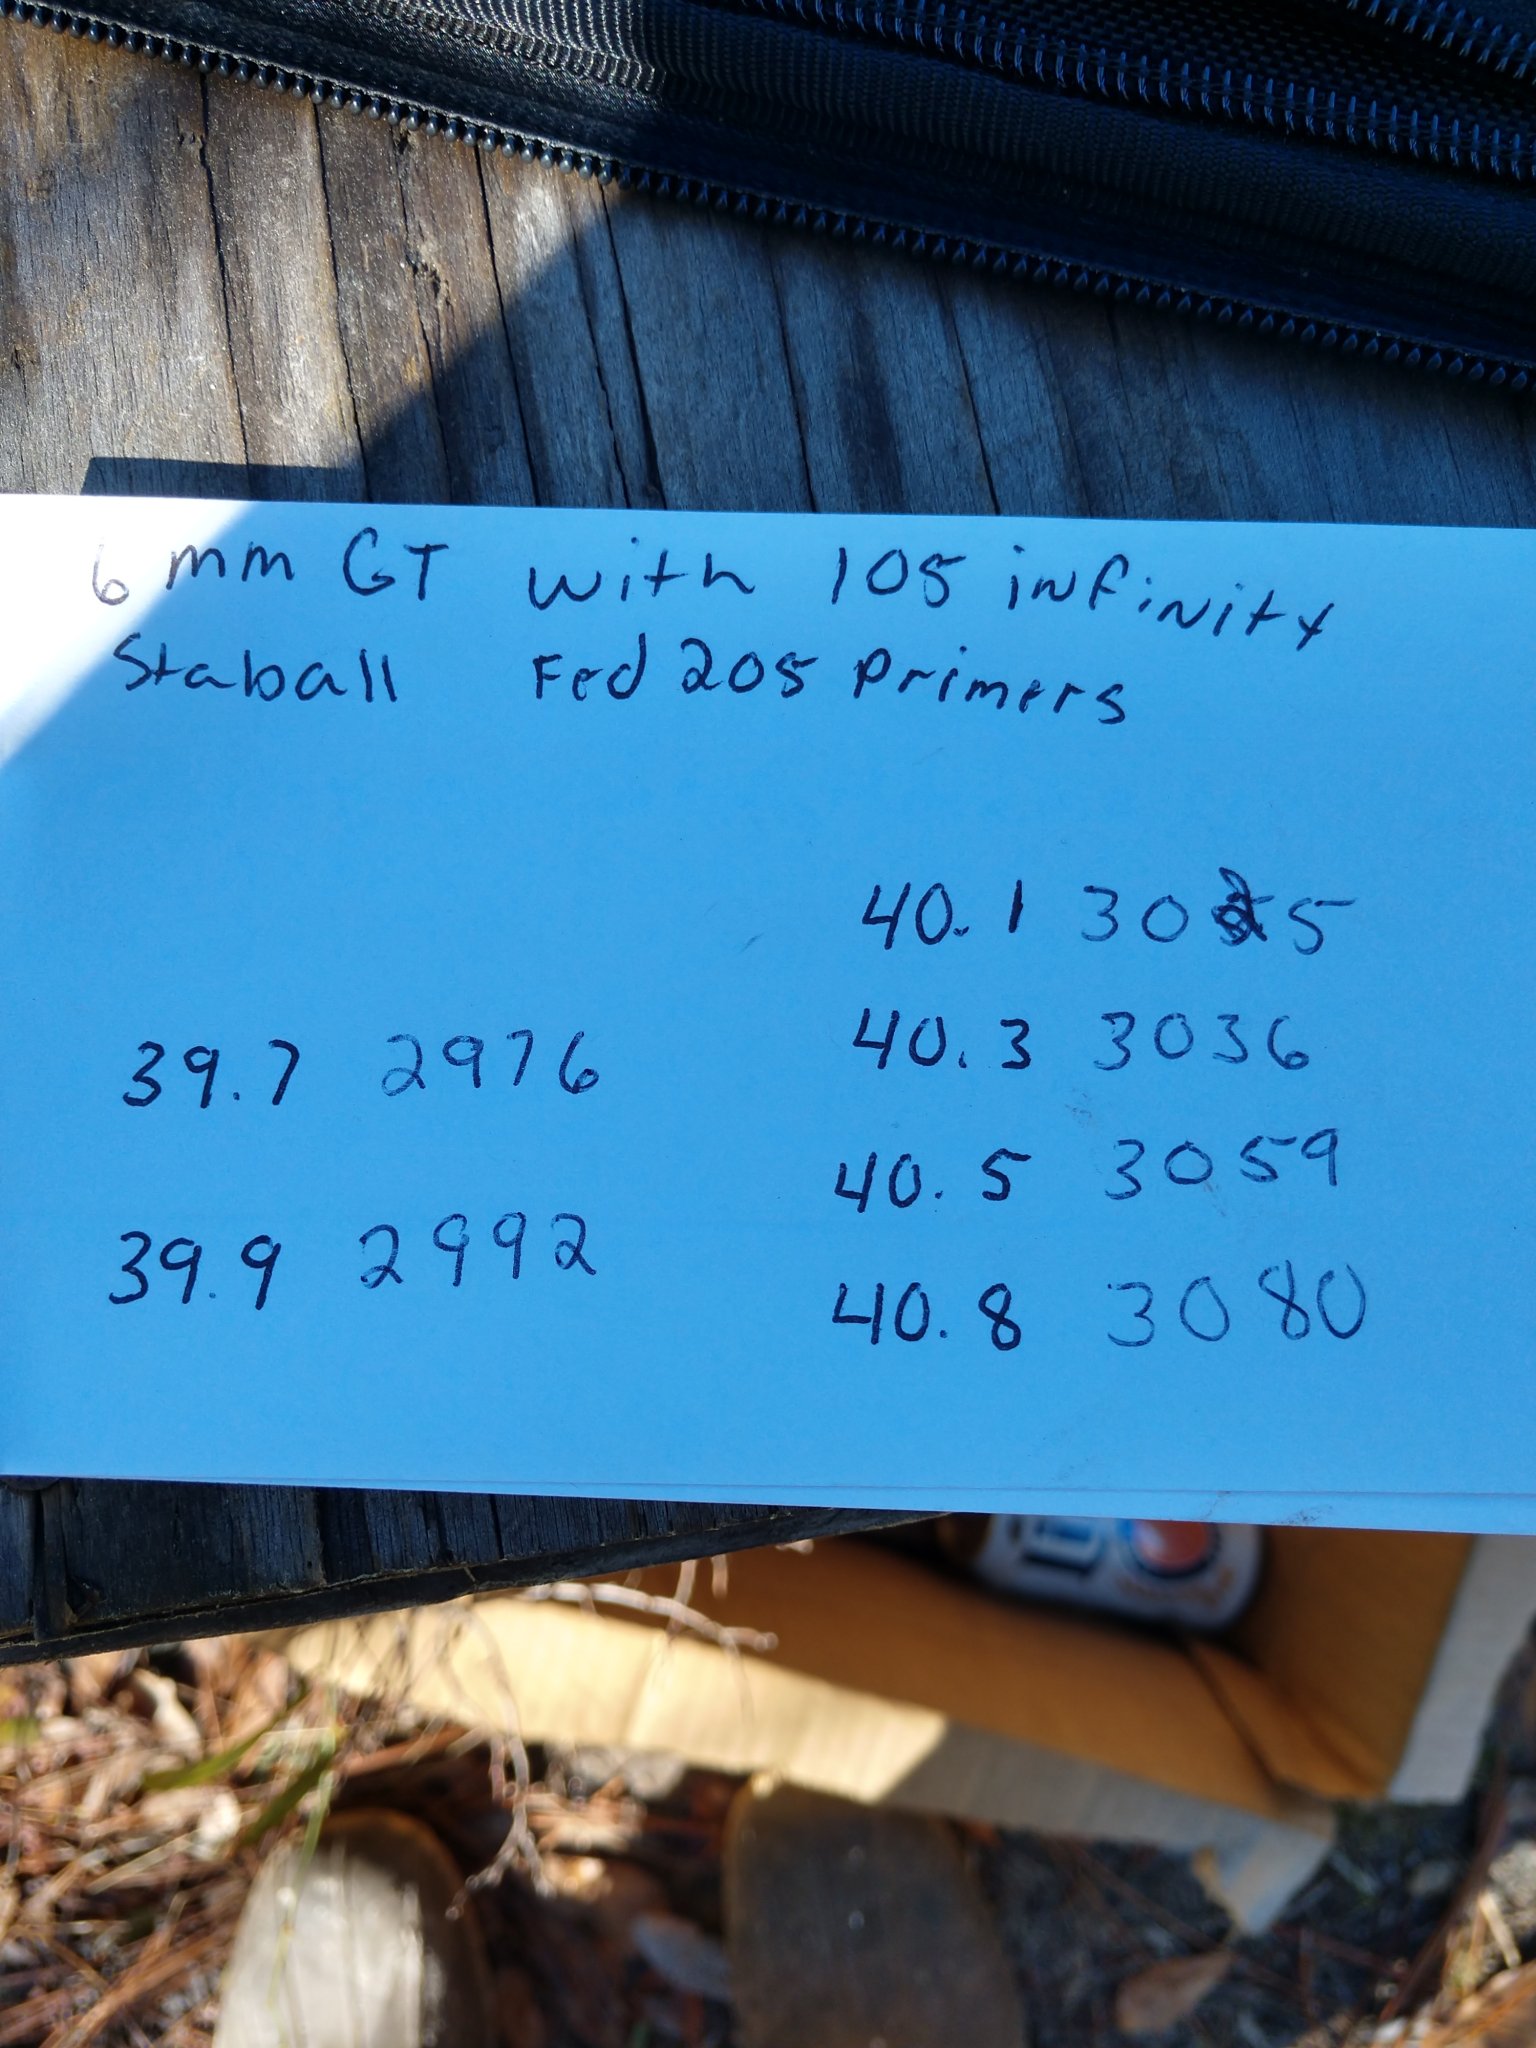 6mm GT with 105 infinity
Staball Fed 205 Primers
40.1 3025
40.3 3036
39.7 2976
40.5 3059
39.9 2992
40.8 3080